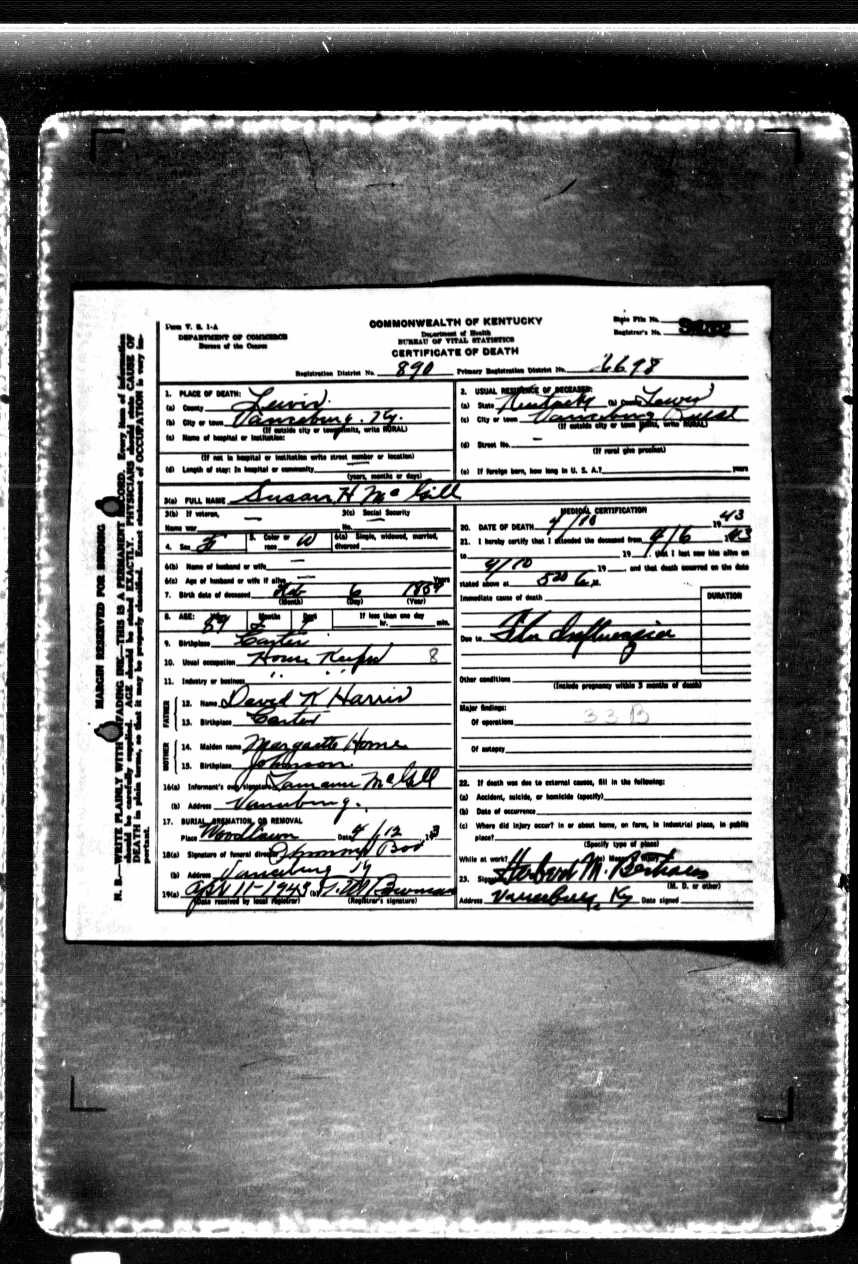 Form V. S. 1-A
DEPARTMENT OF COMMERCE
Bureau of the Census
COMMONWEALTH OF KENTUCKY
Department of Health
BUREAU OF VITAL STATISTICS
CERTIFICATE OF DEATH
State File No.
Registrar's No.
Registration District No. 890 Primary Registration District No. 6698
1. PLACE OF DEATH:
(a) County Lewis
(b) City or town Vanceburg, Ky.
(If outside city or town limits, write RURAL)
(c) Name of hospital or institution:
(If not in hospital or institution write street number or location)
(d) Length of stay: In hospital or community
(years, months or days)
2. USUAL RESIDENCE OF DECEASED:
(a) State Kentucky (b) County Lewis
(c) City or town Vanceburg Rural
(If outside city or town limits, write RURAL)
(d) Street No. —
(If rural give precinct)
(e) If foreign born, how long in U. S. A.? years
3(a) FULL NAME Susan H McGill
3(b) If veteran, 3(c) Social Security
Name war — No. —
4. Sex F 5. Color or race W 6(a) Single, widowed, married, divorced
6(b) Name of husband or wife —
6(c) Age of husband or wife if alive — Years
7. Birth date of deceased Feb 6
(Month) (Day) (Year)
8. AGE: Years Months Days If less than one day
89 2 hr. min.
9. Birthplace Carter
10. Usual occupation House Keeper 8
11. Industry or business " "
FATHER
12. Name David K Harris
13. Birthplace Carter
MOTHER
14. Maiden name Margaette Horne
15. Birthplace Johnson
16(a) Informant's own signature McGill
(b) Address Vanceburg.
17. BURIAL, CREMATION, OR REMOVAL
Place Woodlawn Date 4/12 43
18(a) Signature of funeral director
(b) Address Vanceburg Ky
19(a) Apr 11-1943 (b) Bowman
(Date received by local registrar) (Registrar's signature)
MEDICAL CERTIFICATION
20. DATE OF DEATH 4/10 1943
21. I hereby certify that I attended the deceased from 4/6 1943
to 19 , that I last saw him alive on
4/10 19 , and that death occurred on the date
stated above at 520 m.
Immediate cause of death DURATION
Due to Flu Influenzia
Other conditions
(Include pregnancy within 3 months of death)
Major findings:
Of operations 33B
Of autopsy
22. If death was due to external causes, fill in the following:
(a) Accident, suicide, or homicide (specify)
(b) Date of occurrence
(c) Where did injury occur? in or about home, on farm, in industrial place, in public
place?
(Specify type of place)
While at work?
23. Signature Herbert M. Bertram
(M. D. or other)
Address Vanceburg, Ky Date signed
MARGIN RESERVED FOR BINDING
N. B.—WRITE PLAINLY WITH UNFADING INK—THIS IS A PERMANENT RECORD. Every item of information
should be carefully supplied. AGE should be stated EXACTLY. PHYSICIANS should state CAUSE OF
DEATH in plain terms, so that it may be properly classified. Exact statement of OCCUPATION is very im-
portant.